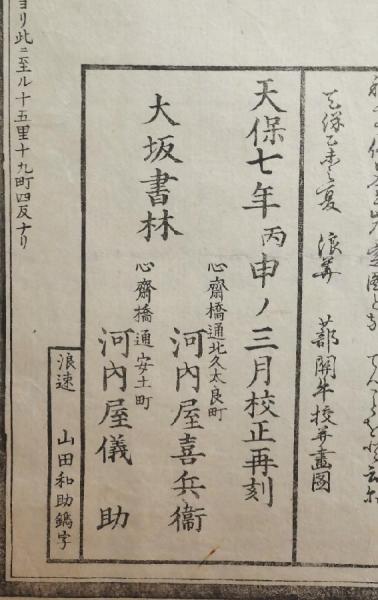 天保乙未之夏 浪華 蔀關牛校并畫圖
天保七年丙申ノ三月校正再刻
大坂書林
心齋橋通北久太良町
河內屋喜兵衞
心齋橋通安土町
河內屋儀助
浪速 山田和助鐫字
ヨリ此ニ至ル十五里十九町四反ナリ